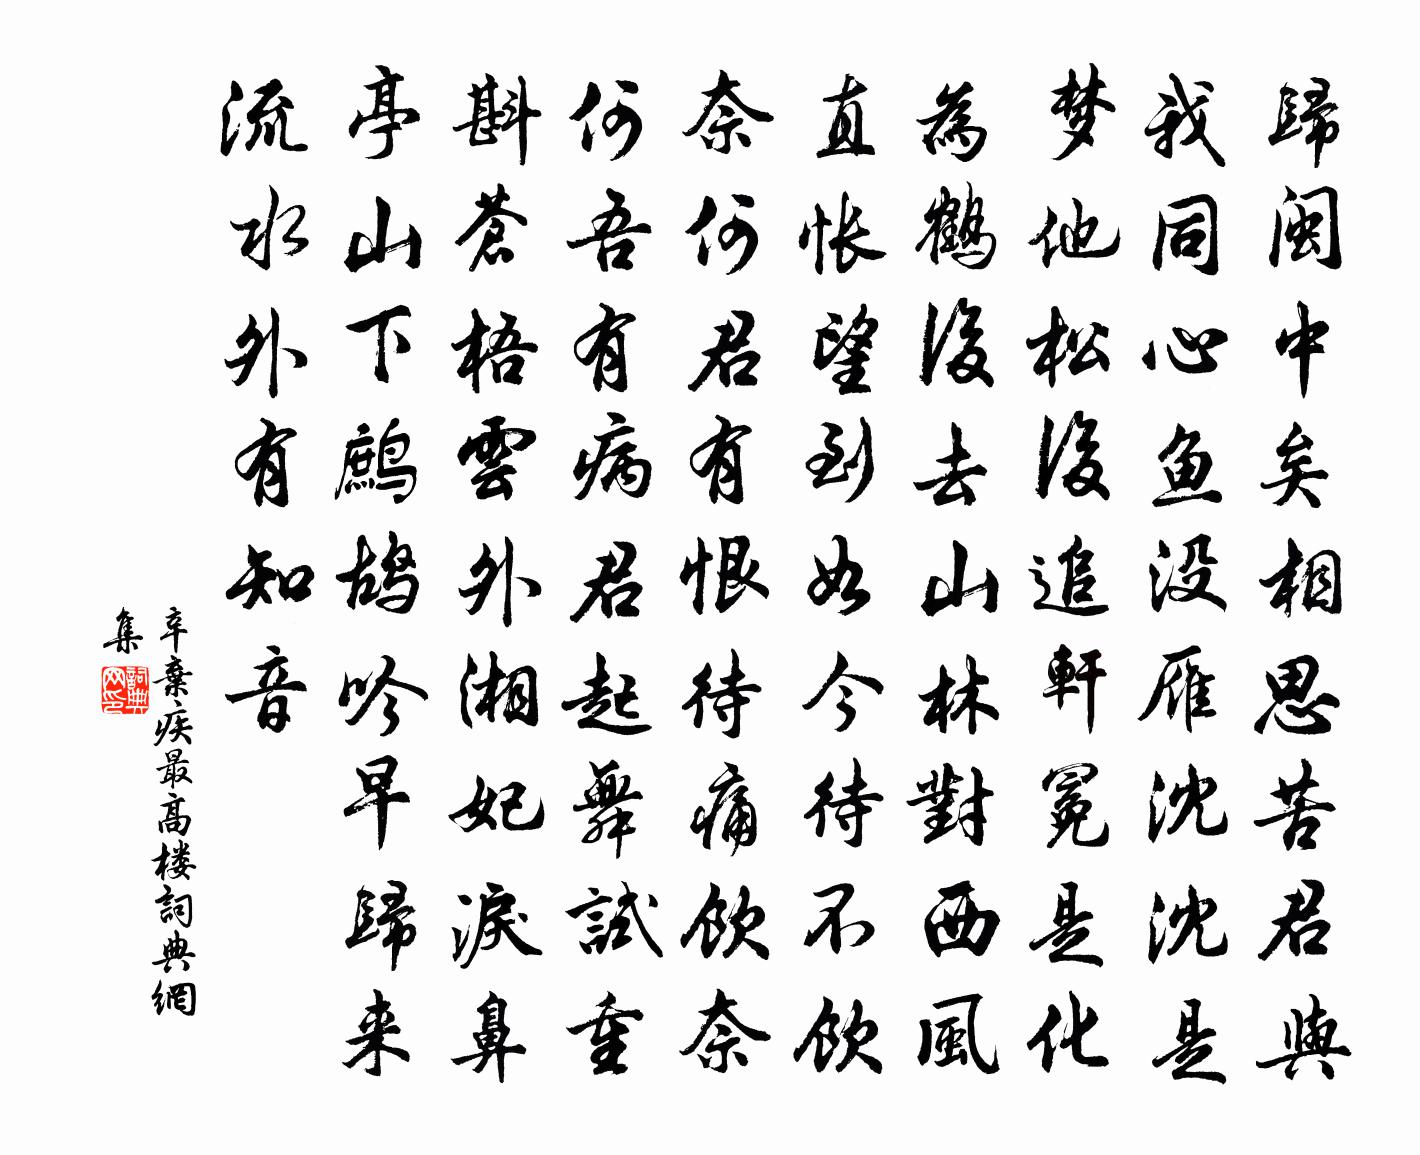 歸閩中矣相思苦君與
我同心鱼没雁沈沈是
梦他松後追軒冕是化
為鶴後去山林對西風
直悵望到如今待不飲
奈何君有恨待痛飲奈
何吾有病君起舞試重
斟蒼梧雲外湘妃淚鼻
亭山下鷓鴣吟早歸来
流水外有知音
辛棄疾最高楼詞典網
集
詞典
网印